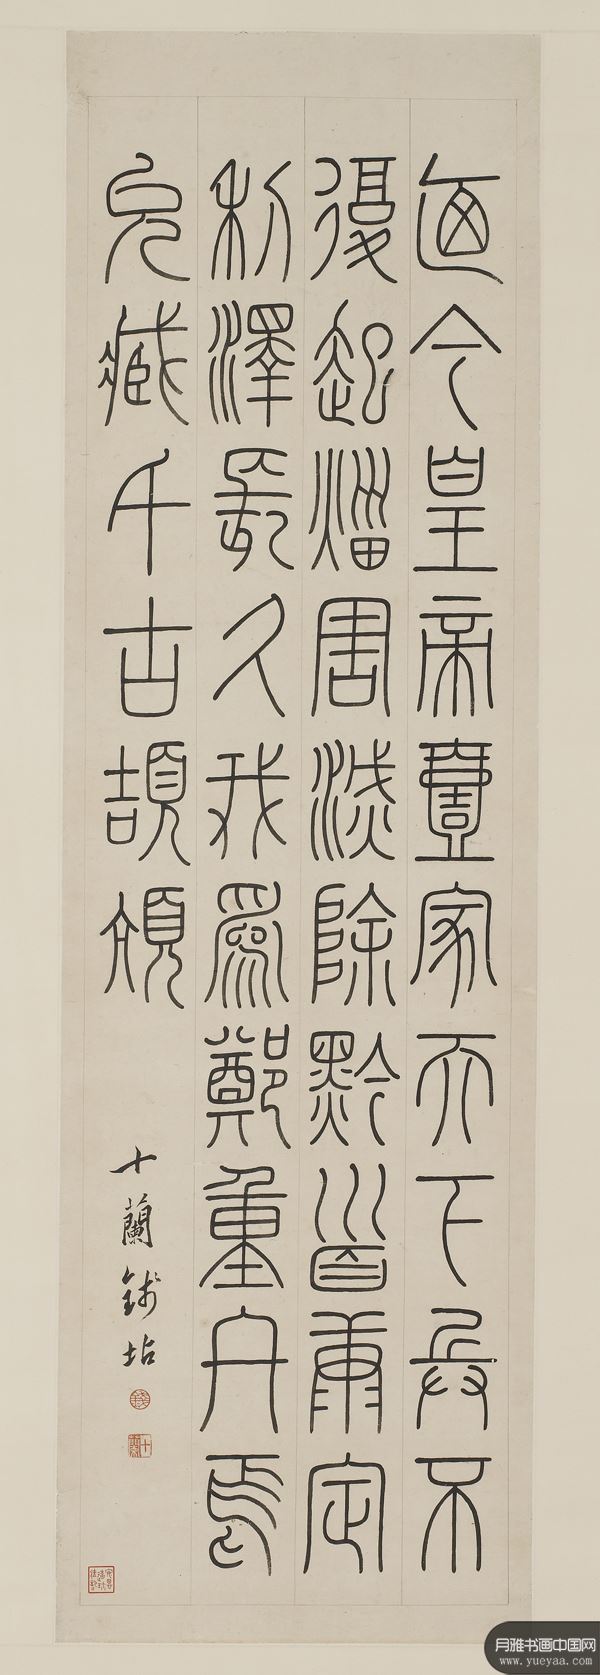 廼今皇帝壹家天下兵不
復起害滅除黔首康定
利澤長久我為鄭重
藏千古頡頏
十蘭錢坫
十蘭
月雅书画中国网
www.yueyaa.com